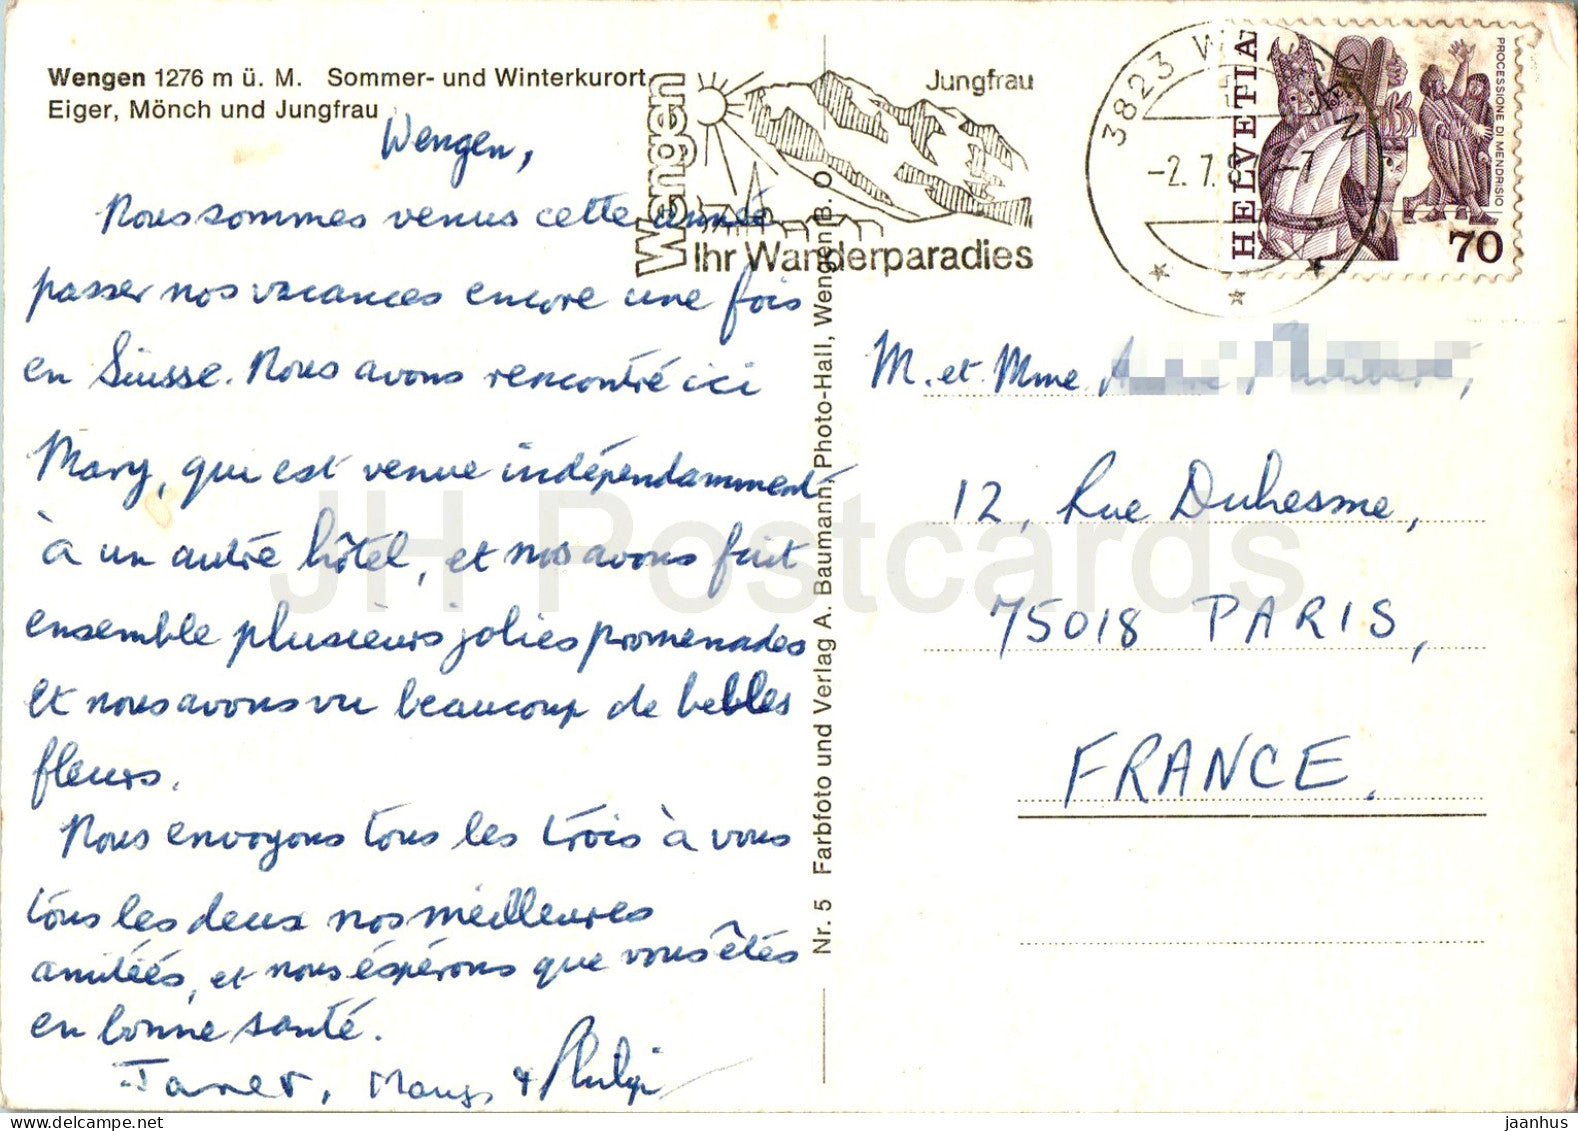 Wengen 1276 m ü. M. Sommer- und Winterkurort
Eiger, Mönch und Jungfrau
Wengen,
Nous sommes venus cette année
passer nos vacances encore une fois
en Suisse. Nous avons rencontré ici
Mary, qui est venue indépendamment
à un autre hôtel, et nos avons fait
ensemble plusieurs jolies promenades
et nous avons vu beaucoup de bebles
fleurs.
Nous envoyons tous les trois à vous
tous les deux nos meilleures
amitiés, et nous éspérons que vous êtes
en bonne santé.
Janet, Mary & Philip
Nr. 5 Farbfoto und Verlag A. Baumann, Photo-Hall, Wengen B. O
Wengen
Jungfrau
Ihr Wanderparadies
3823 WENGEN
-2.7.
HELVETIA
PROCESSIONE DI MENDRISIO
70
M. et Mme
12, Rue Duhesme,
75018 PARIS,
FRANCE.
JH Postcards
jaanhus @ delcampe.net